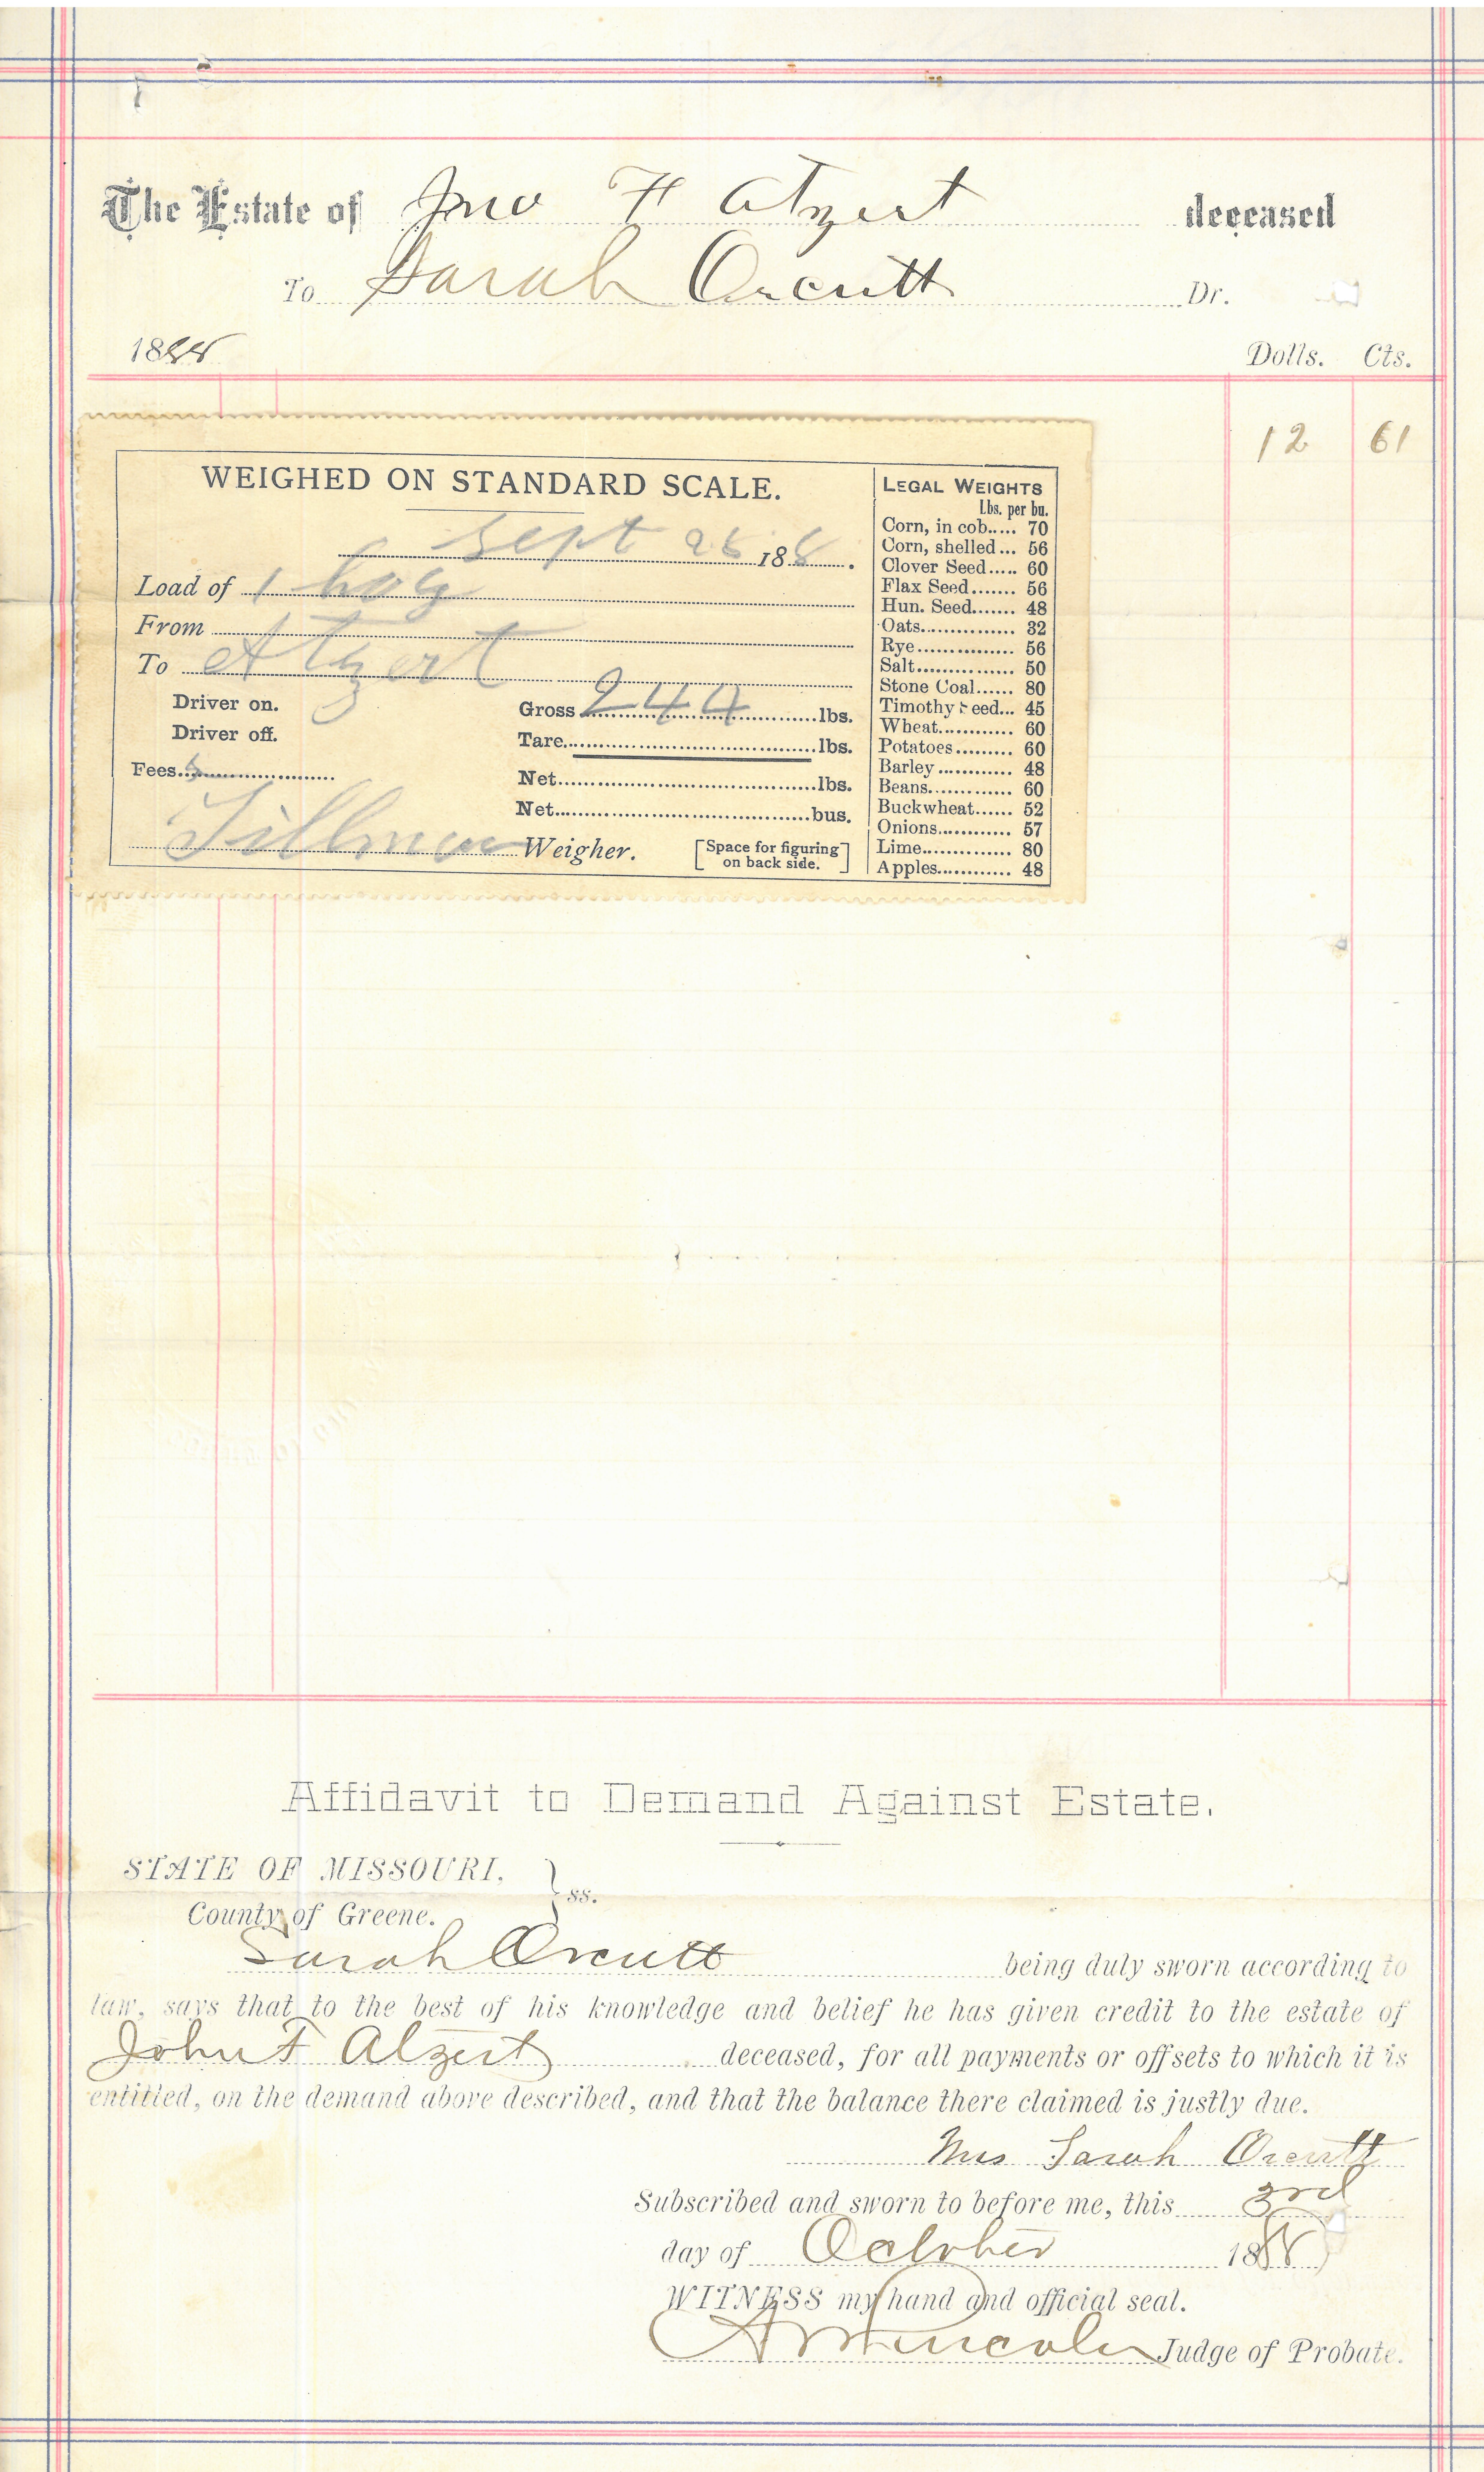 The Estate of Jno F Atzert deceased
To Sarah Orcutt Dr.
1888 Dolls. Cts.
12 61
WEIGHED ON STANDARD SCALE.
Sept 188.
Load of 1 hog
From
To Atzert
Driver on. Gross 244 lbs.
Driver off. Tare lbs.
Fees Net lbs.
Net bus.
Weigher. [Space for figuring on back side.]
LEGAL WEIGHTS
Lbs. per bu.
Corn, in cob..... 70
Corn, shelled... 56
Clover Seed..... 60
Flax Seed....... 56
Hun. Seed....... 48
Oats.............. 32
Rye.............. 56
Salt............... 50
Stone Coal...... 80
Timothy Seed... 45
Wheat............ 60
Potatoes......... 60
Barley............ 48
Beans............. 60
Buckwheat...... 52
Onions............ 57
Lime.............. 80
Apples............ 48
Affidavit to Demand Against Estate.
STATE OF MISSOURI, } ss.
County of Greene.
Sarah Orcutt being duly sworn according to
law, says that to the best of his knowledge and belief he has given credit to the estate of
John F Atzert deceased, for all payments or offsets to which it is
entitled, on the demand above described, and that the balance there claimed is justly due.
Mrs Sarah Orcutt
Subscribed and sworn to before me, this 3rd
day of October 1888
WITNESS my hand and official seal.
Judge of Probate.